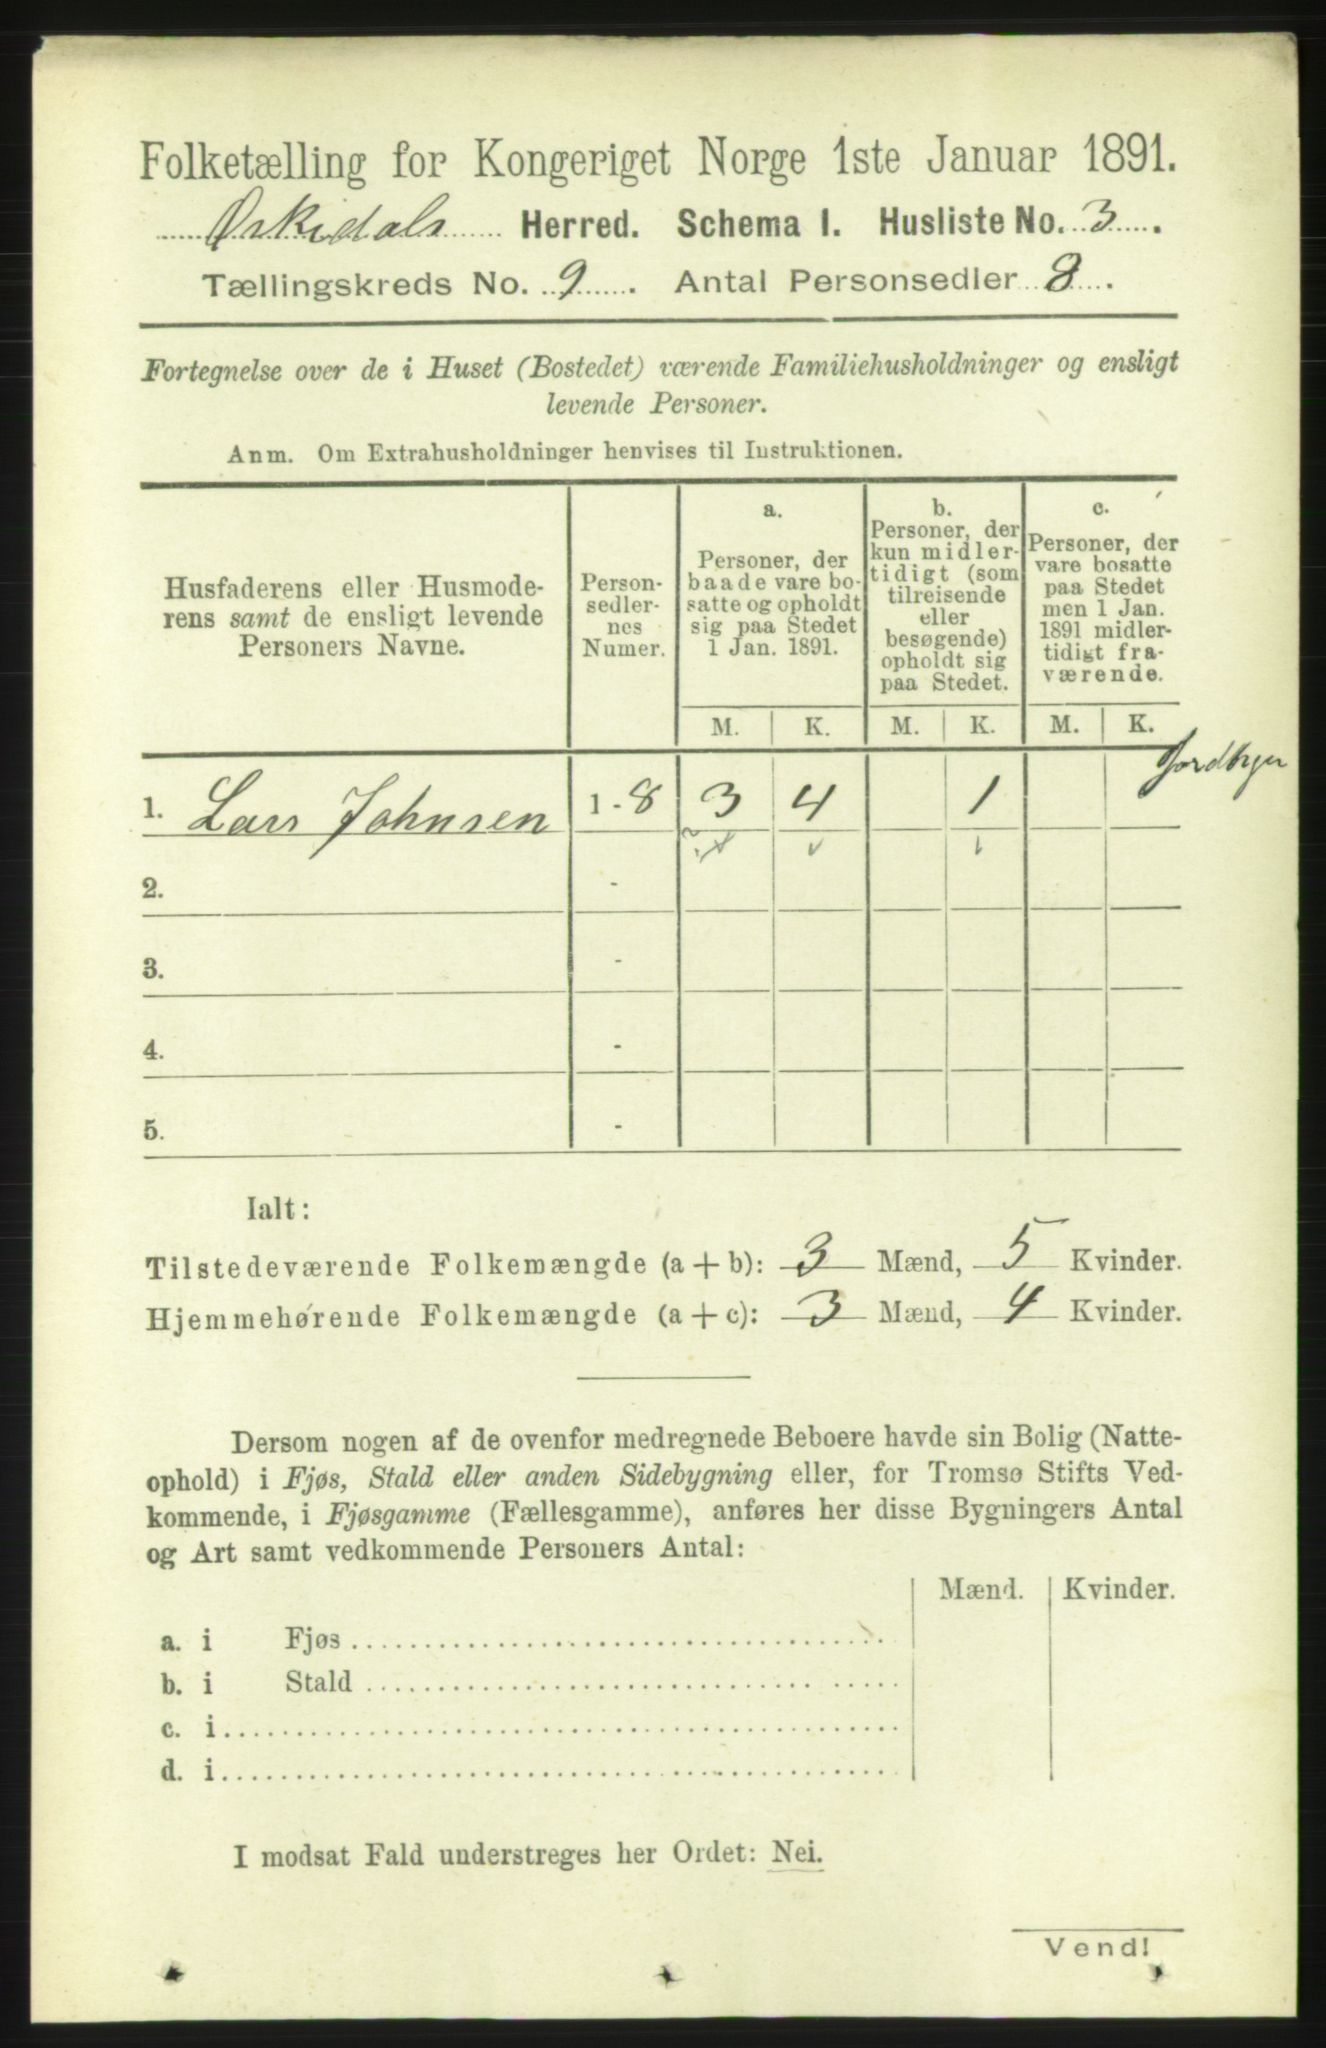 Folketælling for Kongeriget Norge 1ste Januar 1891.
Ørskedals Herred. Schema I. Husliste No. 3.
Tællingskreds No. 9. Antal Personsedler 8.
Fortegnelse over de i Huset (Bostedet) værende Familiehusholdninger og ensligt
levende Personer.
Anm. Om Extrahusholdninger henvises til Instruktionen.
Husfaderens eller Husmode-
rens samt de ensligt levende
Personers Navne.
Person-
sedler-
nes
Numer.
a.
Personer, der
baade vare bo-
satte og opholdt
sig paa Stedet
1 Jan. 1891.
b.
Personer, der
kun midler-
tidigt (som
tilreisende
eller
besøgende)
opholdt sig
paa Stedet.
c.
Personer, der
vare bosatte
paa Stedet
men 1 Jan.
1891 midler-
tidigt fra-
værende.
M. K. M. K. M. K.
1. Lars Johnsen 1-8 3 4 1
2. -
3. -
4. -
5. -
Ialt:
Tilstedeværende Folkemængde (a + b): 3 Mænd, 5 Kvinder.
Hjemmehørende Folkemængde (a + c): 3 Mænd, 4 Kvinder.
Dersom nogen af de ovenfor medregnede Beboere havde sin Bolig (Natte-
ophold) i Fjøs, Stald eller anden Sidebygning eller, for Tromsø Stifts Ved-
kommende, i Fjøsgamme (Fællesgamme), anføres her disse Bygningers Antal
og Art samt vedkommende Personers Antal:
Mænd. Kvinder.
a. i Fjøs
b. i Stald
c. i
d. i
I modsat Fald understreges her Ordet: Nei.
Vend!